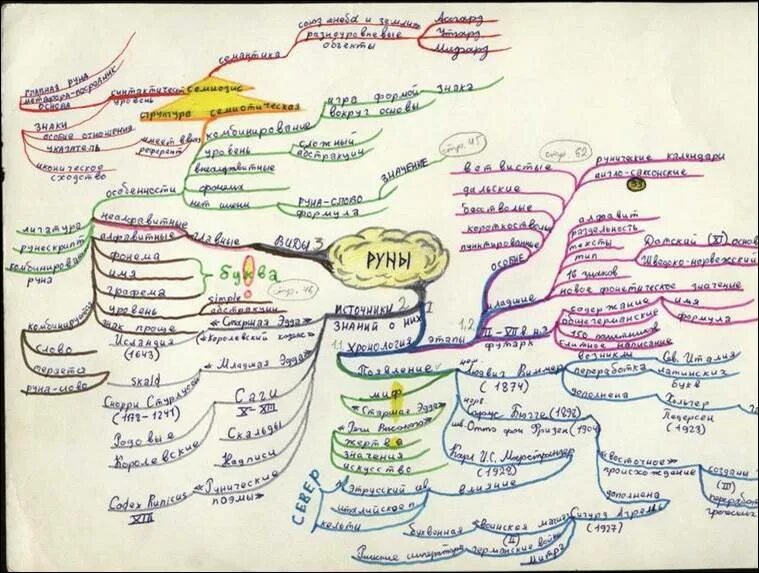 союз неба и земли
разноуровневые
объекты
Асгард
Утгард
Мидгард
семантика
главная руна
метафора-посредник
основа
синтактический
уровень
семиозис
структура семиотическая
знаки
особые отношения
указатель
имеет ввиду
референт
иконическое
сходство
игра формой
вокруг основы
знака
комбинирование
уровень
сложный
абстракции
внеалфавитные
фонемы
нет имени
особенности
РУНА-СЛОВО
ФОРМУЛА
ЗНАЧЕНИЕ
стр. 45
стр. 52
лигатура
рунескрипт
комбинированная
руна
неалфавитные
алфавитные
главные
ВИДЫ 3
фонема
имя
графема
уровень
знак проще
буква
simple
абстракции
стр. 46
комбинируются
слово
руна-слово
РУНЫ
ветвистые
дальские
безстволые
коротковетвистые
пунктированные
особые
рунические календари
англо-саксонские
33
алфавит
раздельность
тексты
тип
Датский (XI) основной
Шведско-норвежский
16 знаков
новое фонетическое значение
младшие
содержание
имя
формула
общегерманские
150 памятников
слитное написание
II - VII в н.э.
футарк
1.2
этапы
I
ИСТОЧНИКИ 2
ЗНАНИЙ О НИХ
1.1 ХРОНОЛОГИЯ
«Старшая Эдда»
«Королевский кодекс»
Исландия
(1643)
«Младшая Эдда»
skald
Снорри Стурлусон
(1178-1241)
САГИ
X-XIII
Родовые
Королевские
Скальды
Надписи
«Рунические
поэмы»
Codex Runicus
XIII
Появление
миф
«Старшая Эдда»
«Речи Высокого»
жертва
значения
искусство
СЕВЕР
Этрусский ал
италийское п
кельты
влияние
норв.
Людвиг Виммер
(1874)
возникли
Сев. Италия
переработка
латинских
букв
дополнена
Хольгер
Педерсен
(1923)
норв.
Софус Бюгге (1892)
шв. Отто фон Фризен (1904)
Карл И.С. Марстрандер
(1928)
«восточное»
происхождение
созданы
(III)
переработ
греческого
дополнена
Сигурд Агрелль
(1927)
«воинская магия»
(II)
Буквенная
Римские императоры
германские войны
Митра